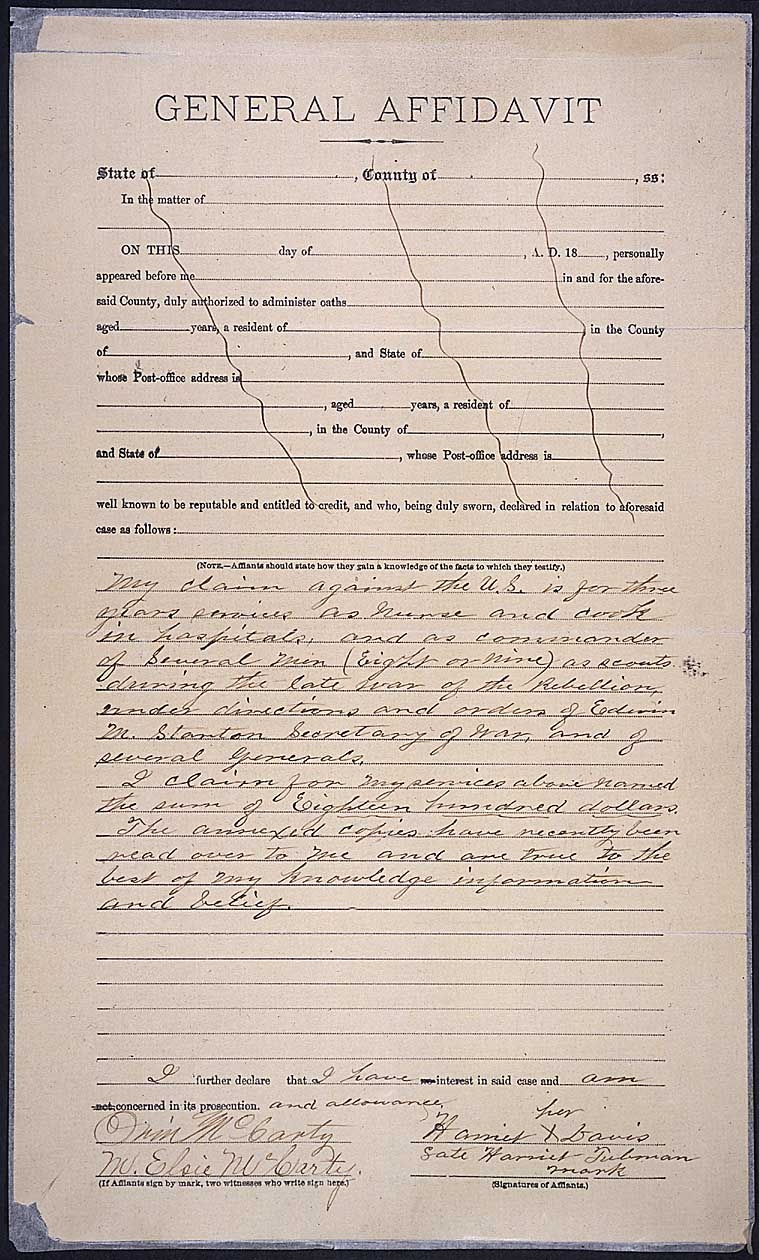 GENERAL AFFIDAVIT
State of , County of , ss:
In the matter of
ON THIS day of , A. D. 18 , personally
appeared before me in and for the afore-
said County, duly authorized to administer oaths
aged years, a resident of in the County
of , and State of
whose Post-office address is
, aged years, a resident of
, in the County of ,
and State of , whose Post-office address is
well known to be reputable and entitled to credit, and who, being duly sworn, declared in relation to aforesaid
case as follows:
(NOTE.—Affiants should state how they gain a knowledge of the facts to which they testify.)
My claim against the U.S. is for three
years services as nurse and cook
in hospitals, and as commander
of Several men (Eight or Nine) as scouts
during the late war of the Rebellion,
under directions and orders of Edwin
M. Stanton Secretary of War, and of
several Generals.
I claim for my services above named
the sum of Eighteen hundred dollars.
The annexed copies have recently been
read over to me and are true to the
best of my knowledge information
and belief.
I further declare that I have no interest in said case and am
not concerned in its prosecution. and allowance
her
Orin McCarty Harriet X Davis
late Harriet Tubman
M. Elsie McCarty. mark
(If Affiants sign by mark, two witnesses who write sign here.) (Signatures of Affiants.)